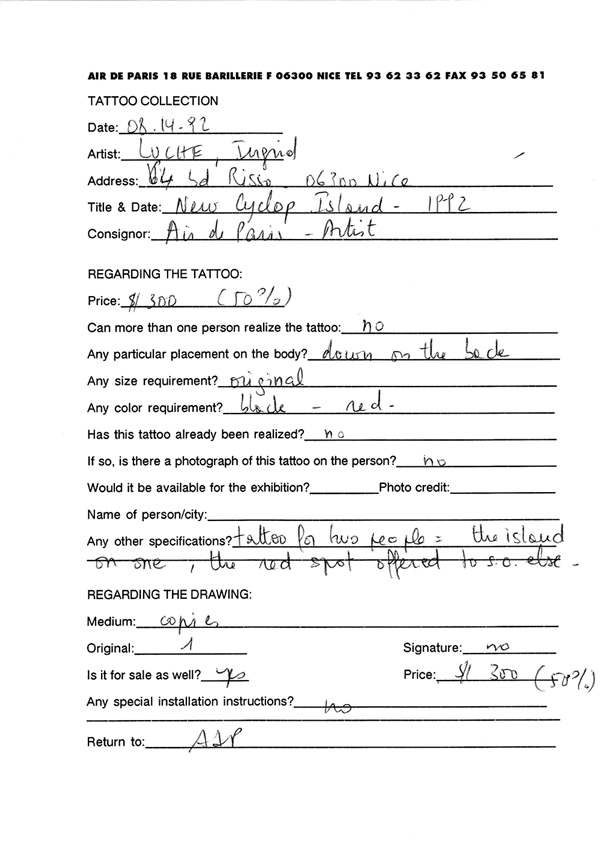 AIR DE PARIS 18 RUE BARILLERIE F 06300 NICE TEL 93 62 33 62 FAX 93 50 65 81
TATTOO COLLECTION
Date: 08.14-92
Artist: LUCHE, Ingrid
Address: 64 bd Risso 06300 Nice
Title & Date: New Cyclop Island - 1992
Consignor: Air de Paris - Artist
REGARDING THE TATTOO:
Price: $ 300 (50%)
Can more than one person realize the tattoo: no
Any particular placement on the body? down on the back
Any size requirement? original
Any color requirement? black - red -
Has this tattoo already been realized? no
If so, is there a photograph of this tattoo on the person? no
Would it be available for the exhibition? Photo credit:
Name of person/city:
Any other specifications? tattoo for two people = the island
on one, the red spot offered to s.o. else -
REGARDING THE DRAWING:
Medium: copie
Original: 1 Signature: no
Is it for sale as well? yes Price: $ 300 (50%)
Any special installation instructions? no
Return to: ADP